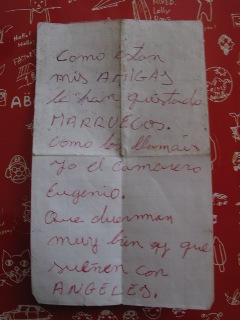 Como estan
mis AMIGAS
le han gustado
MARRUECOS.
Como los llamais
yo el camarero
Eugenio.
Que duerman
muy bien y que
sueñen con
ANGELES.